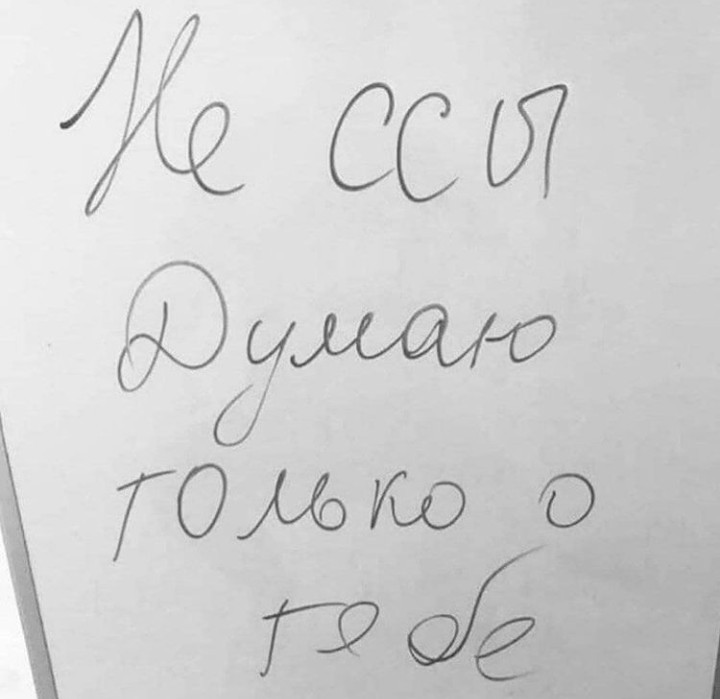 Не ссы
Думаю
только о
тебе